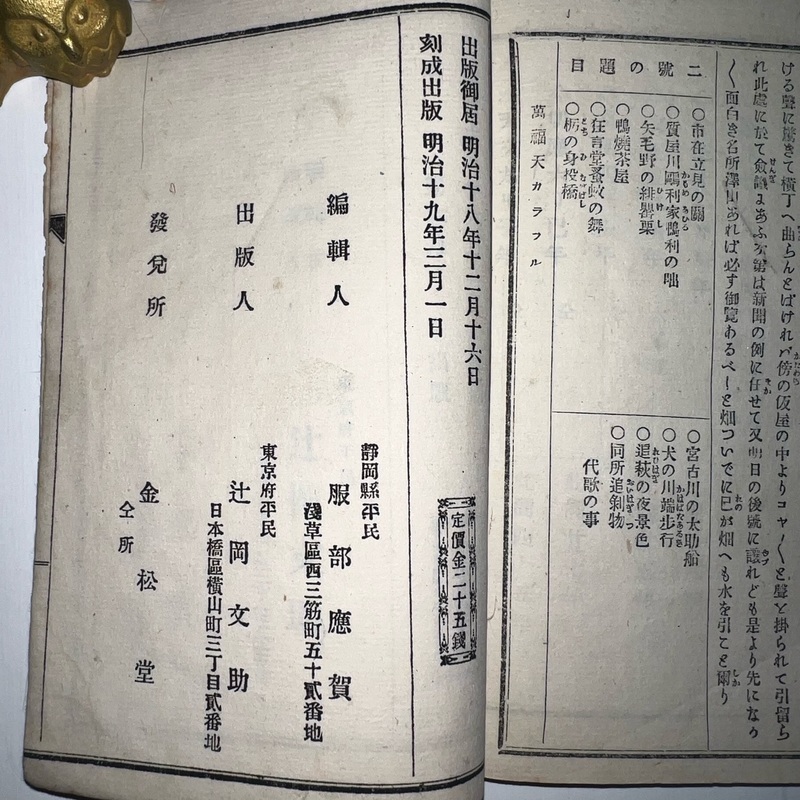 ける聲に驚きて横丁へ曲らんとばけれバ傍の仮屋の中よりコヤ〳〵と聲を掛られて引留ら
れ此處に於て僉議まあふ次第は新聞の例に任せて又明日の後號に讓れども是より先になり
〳〵面白き名所澤山あれば必す御覽あるべーと畑ついでに巳が畑へも水を引こと爾り
二號の題目
○市在立見の關
○質屋川鷗利家鴨利の咄
○矢毛野の緋罌粟
○鴨燒茶屋
○狂言堂蚤蚊の舞
○栃の身投橋
○宮古川の太助船
○犬の川端歩行
○追萩の夜景色
○同所追剥物
代歌の事
萬福天カラフル
出版御届 明治十八年十二月十六日
刻成出版 明治十九年三月一日
定價金二十五錢
編輯人
靜岡縣平民
服部應賀
淺草區西三筋町五十貳番地
出版人
東京府平民
辻岡文助
日本橋區横山町三丁目貳番地
發兌所
金松堂
仝所